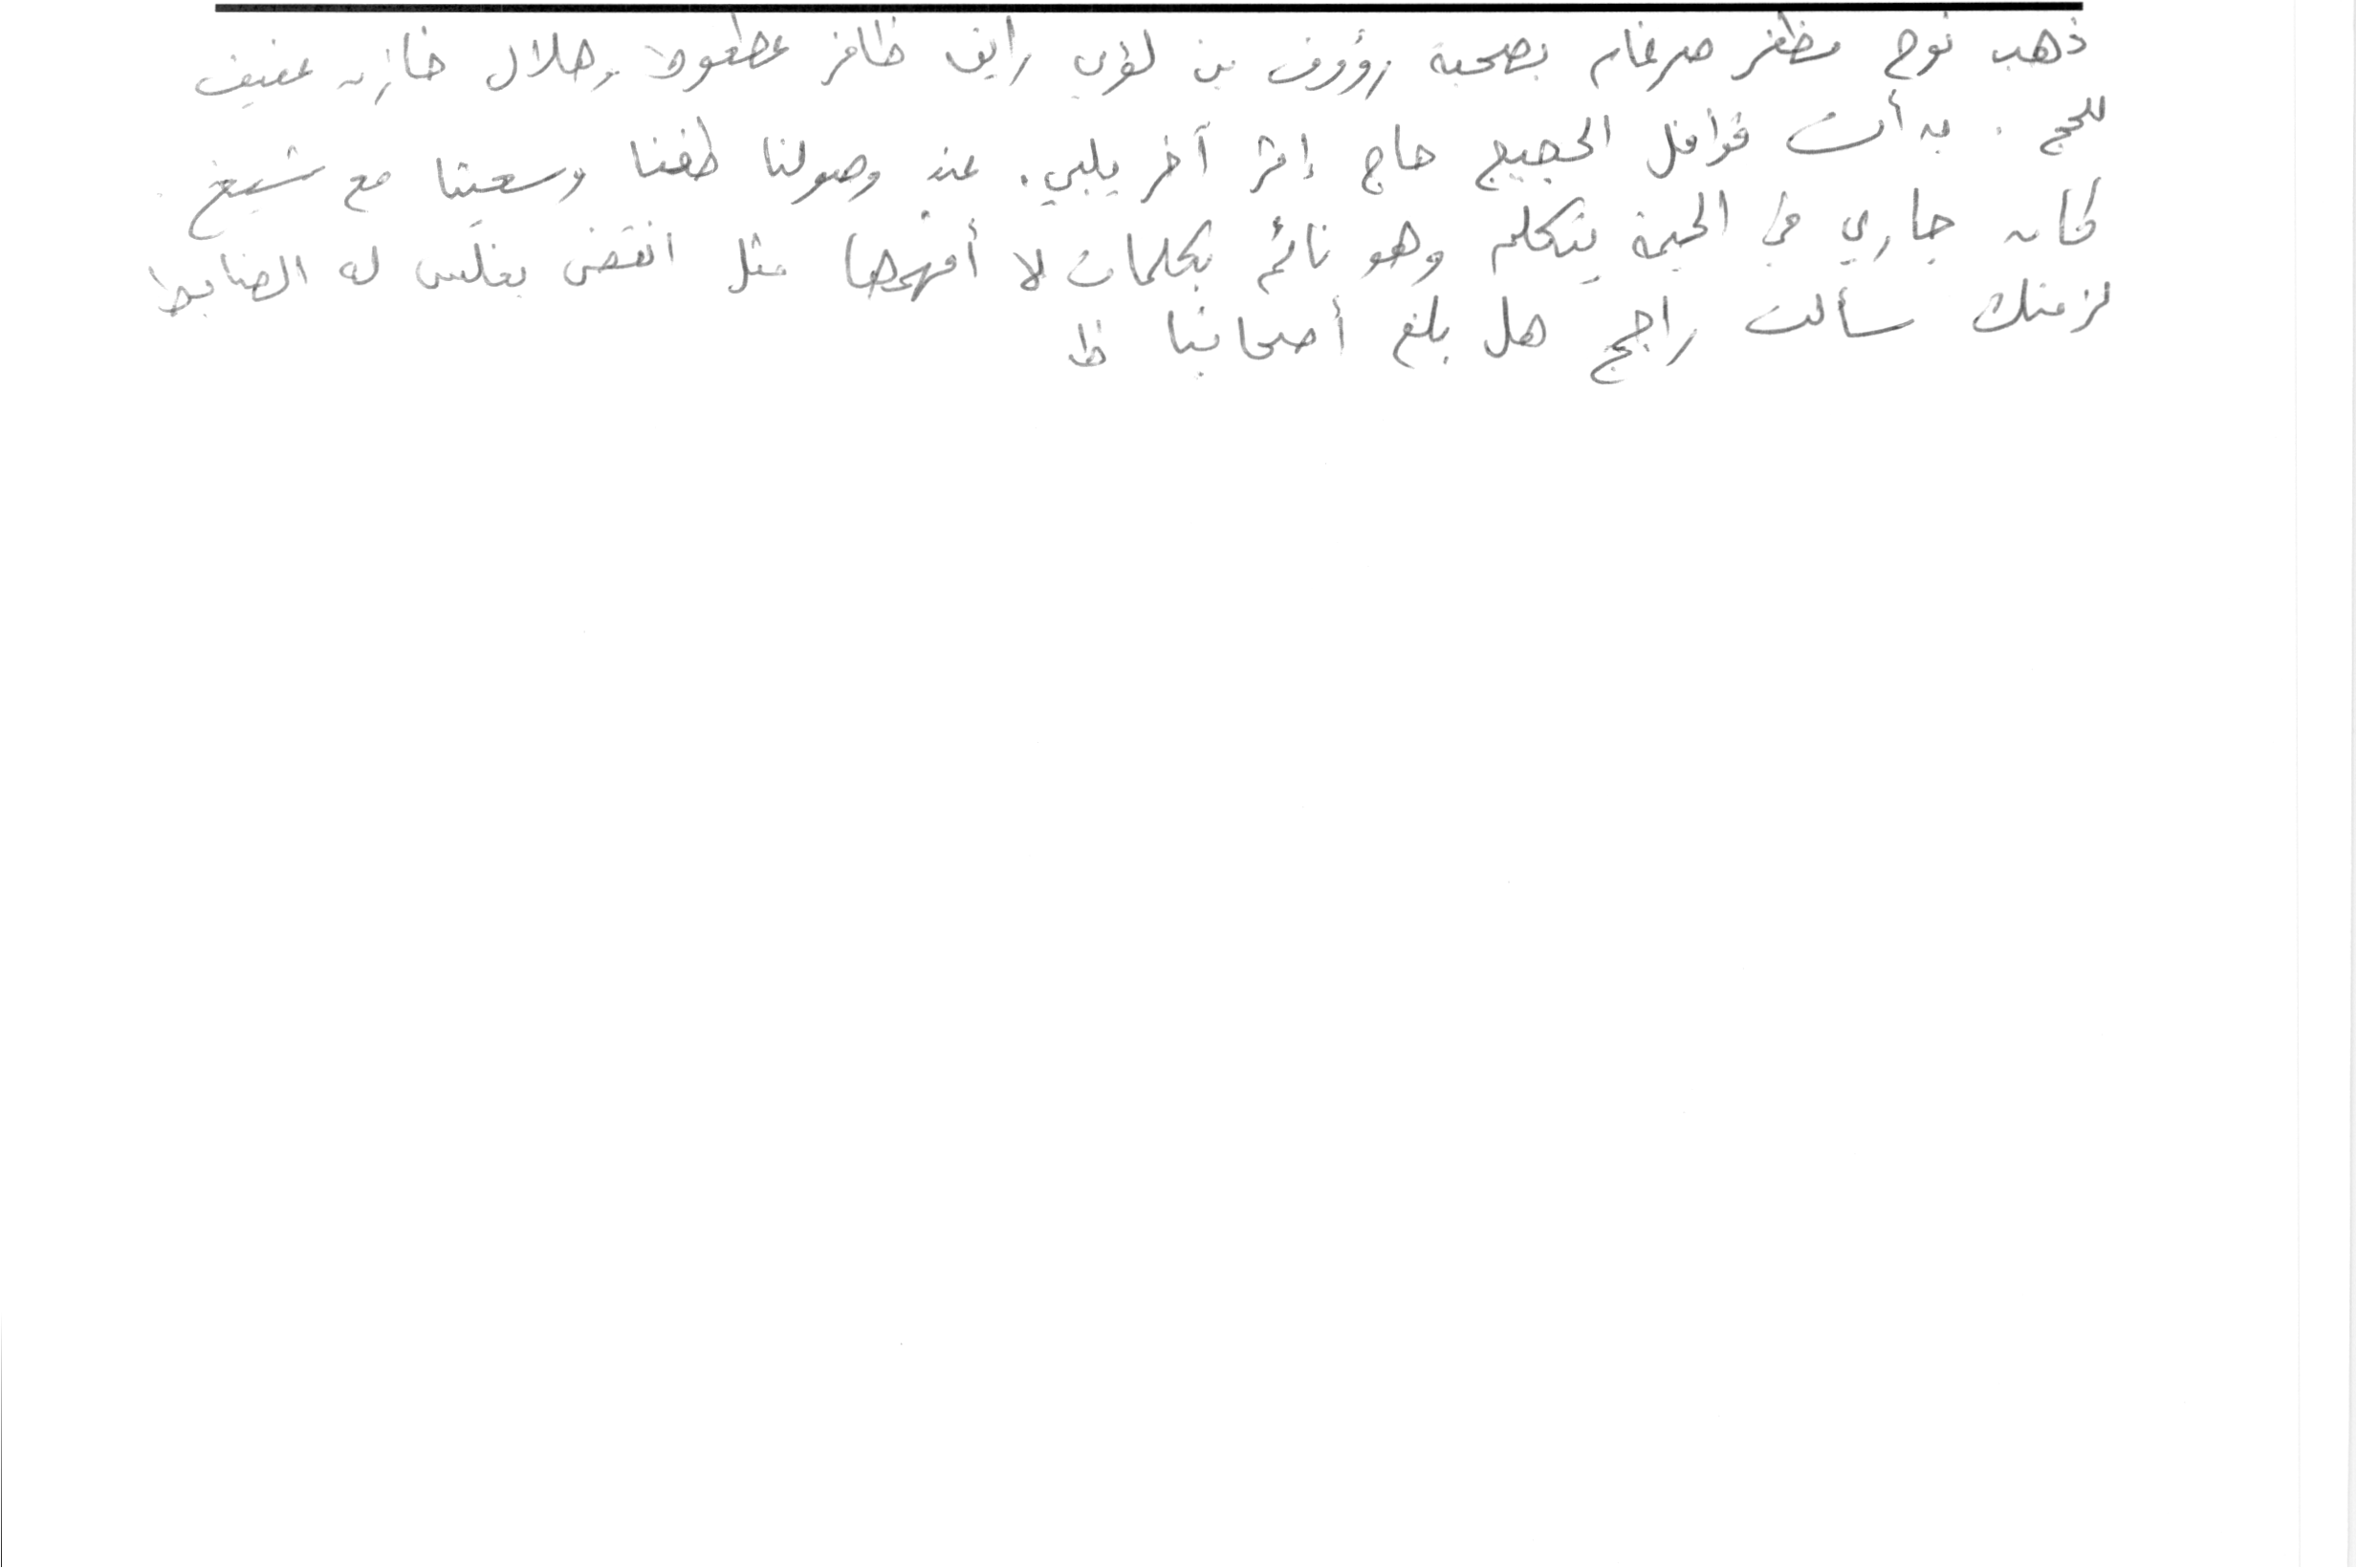 ذهب نوح مظفر ضرغام بصحبة رؤوف بن لؤي رايق ظافر عطعوط وهلال خازن عفيف
للحج . بدأت قوافل الحجيج حاج إثر آخر يلبي. عند وصولنا طفنا وسعينا مع شيخ
كان جاري في الخيمة يتكلم وهو نائم بكلمات لا أفهمها مثل انقض بغلس له الضابط
لزمتك سألت راجح هل بلغ أصحابنا ظ